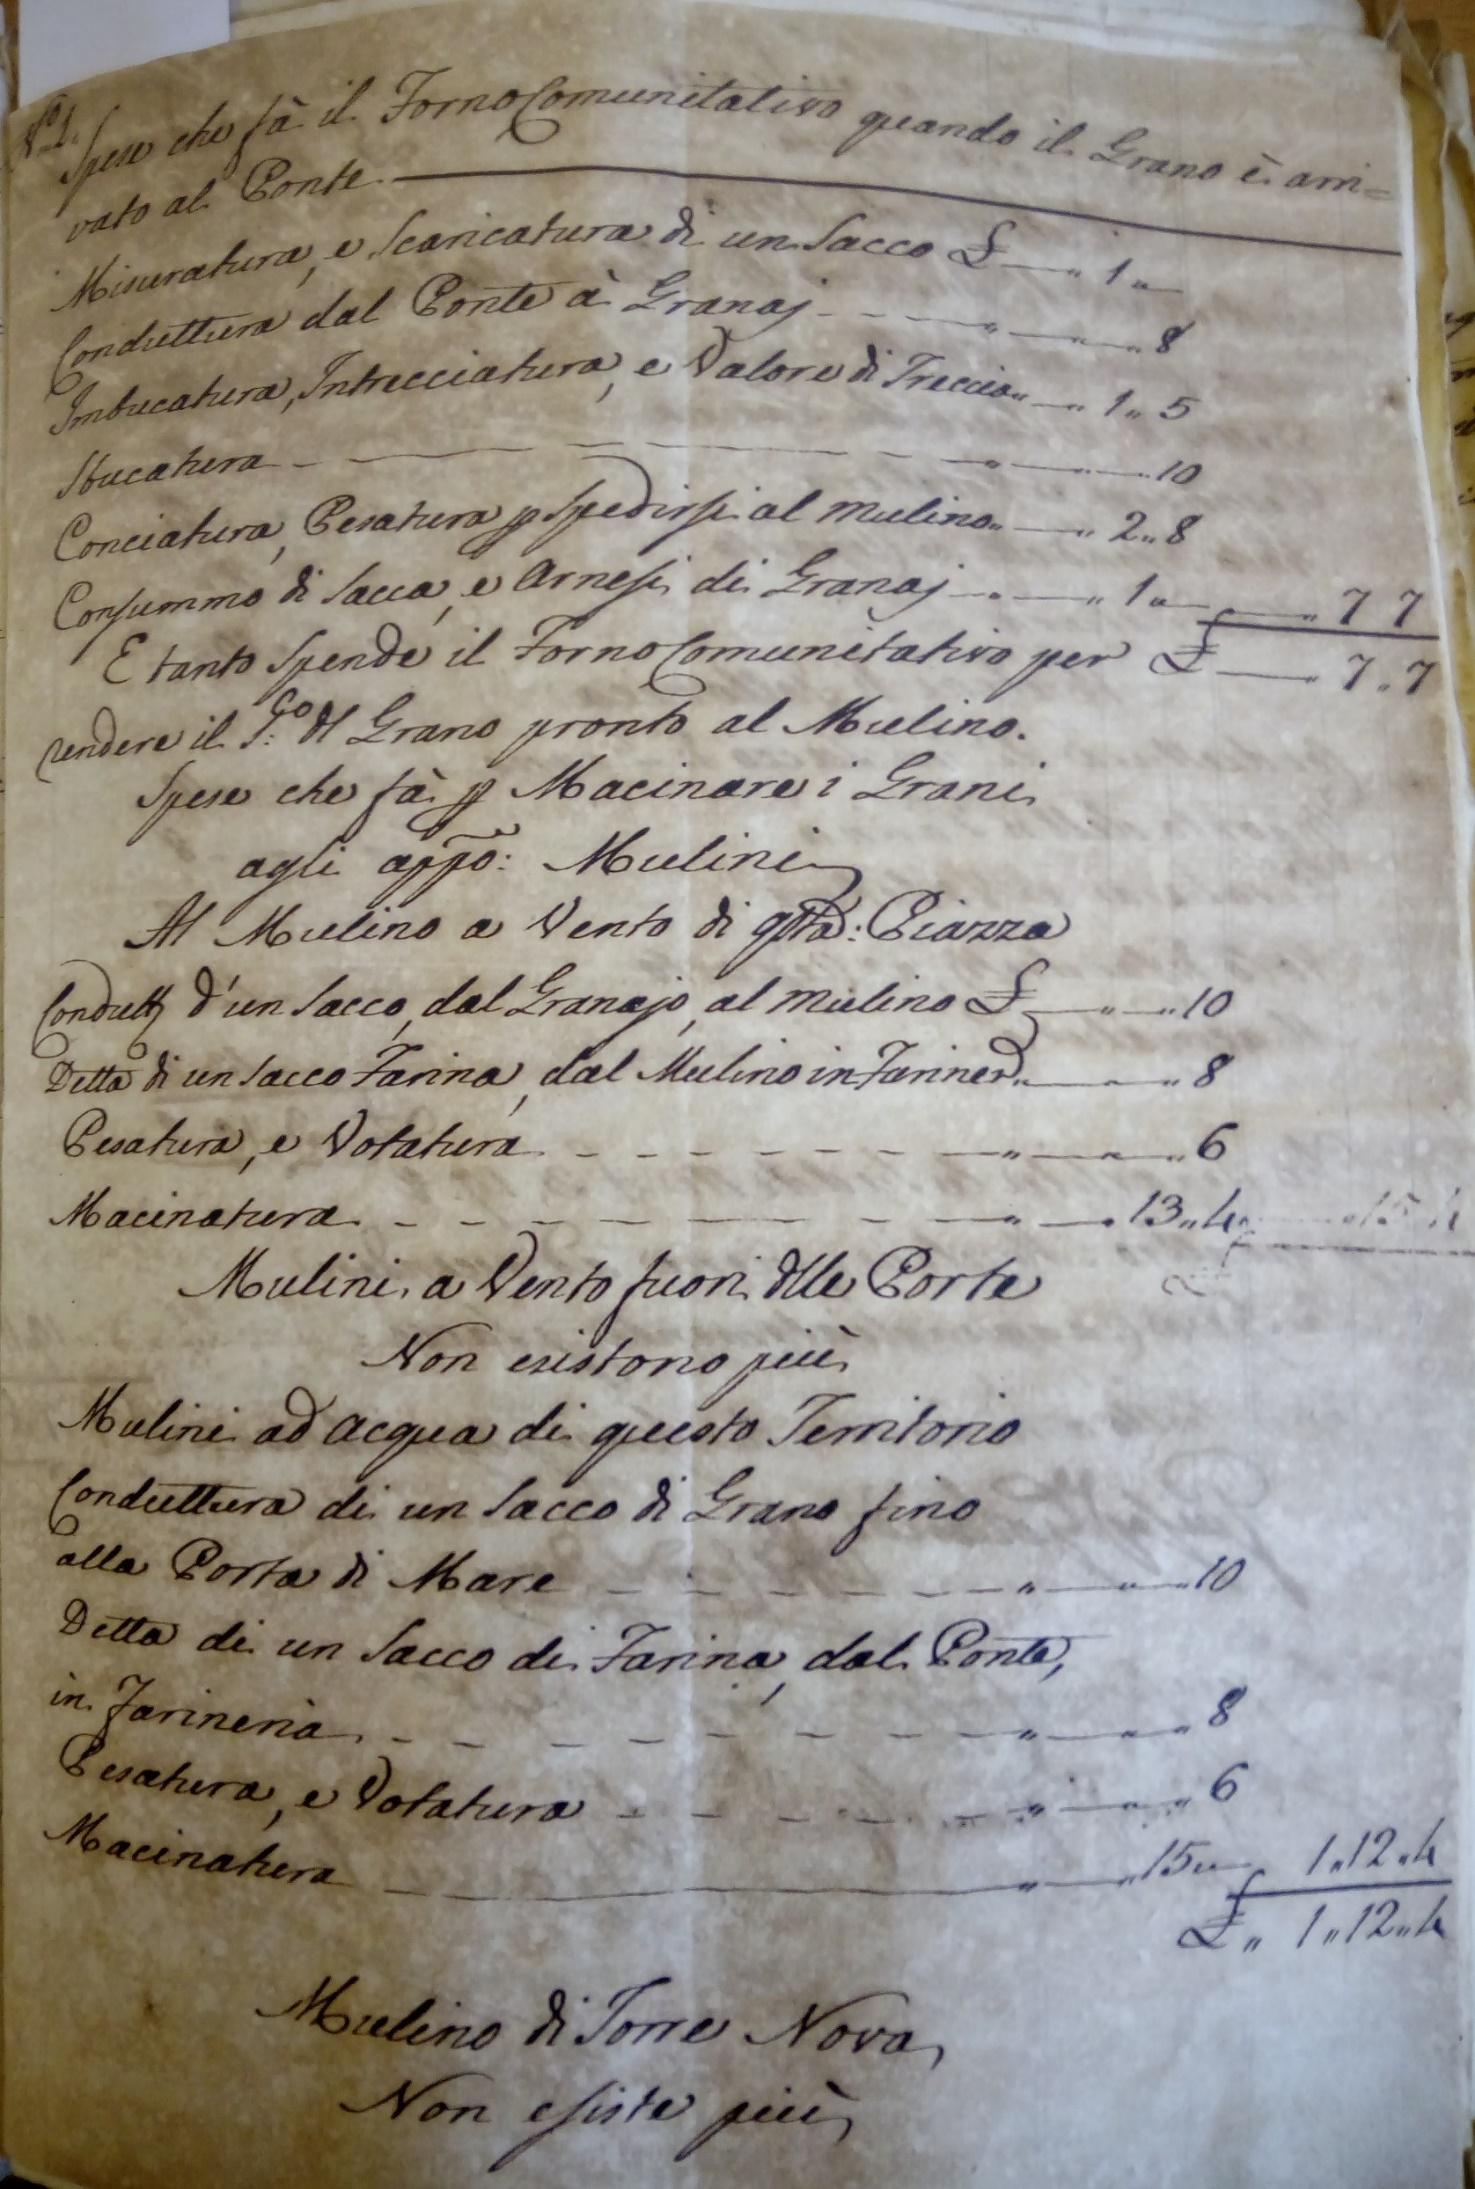 N.º 1.
Spese che fà il Forno Comunitativo quando il Grano è arri=
vato al Ponte
Misuratura, e Scaricatura di un Sacco £ — „ 1 „ —
Conduttura dal Ponte à Granaj - - — „ — „ — „ 8
Imbucatura, Intrecciatura, e Valore di Treccia „ — „ 1 „ 5
Sbucatura - — — — — — — „ — „ — 10
Conciatura, Pesatura p Spedirsi al Mulino „ — „ 2 „ 8
Consummo di Sacca, e Arnesi di Granaj — „ — „ 1 „ — „ — „ 7 7
E tanto Spende il Forno Comunitativo per £ — „ 7 „ 7
rendere il S:co dl Grano pronto al Mulino.
Spese che fà p Macinare i Grani
agli appõ: Mulini
Al Mulino a Vento di qsta: Piazza
Condutt d'un Sacco, dal Granajo, al Mulino £ — „ — „ 10
Detta di un Sacco Farina, dal Mulino in Farineria „ — „ — „ 8
Pesatura, e Votatura - - - - - - - — „ — „ — „ 6
Macinatura - - - - - - - — „ — „ 13 „ 4 „ — „ 15 4
£
Mulini a Vento fuori dlle Porte
Non esistono più
Mulini ad acqua di questo Territorio
Conduttura di un Sacco di Grano fino
alla Porta di Mare - - - - - - — „ — „ — 10
Detta di un Sacco di Farina, dal Ponte,
in Farineria - - - - - - - „ — „ — „ 8
Pesatura, e Votatura - - - - - - „ — „ — „ 6
Macinatura — — „ — „ 15 „ — „ 1 „ 12 „ 4
£ „ 1 „ 12 „ 4
Mulino di Torre Nova
Non esiste più